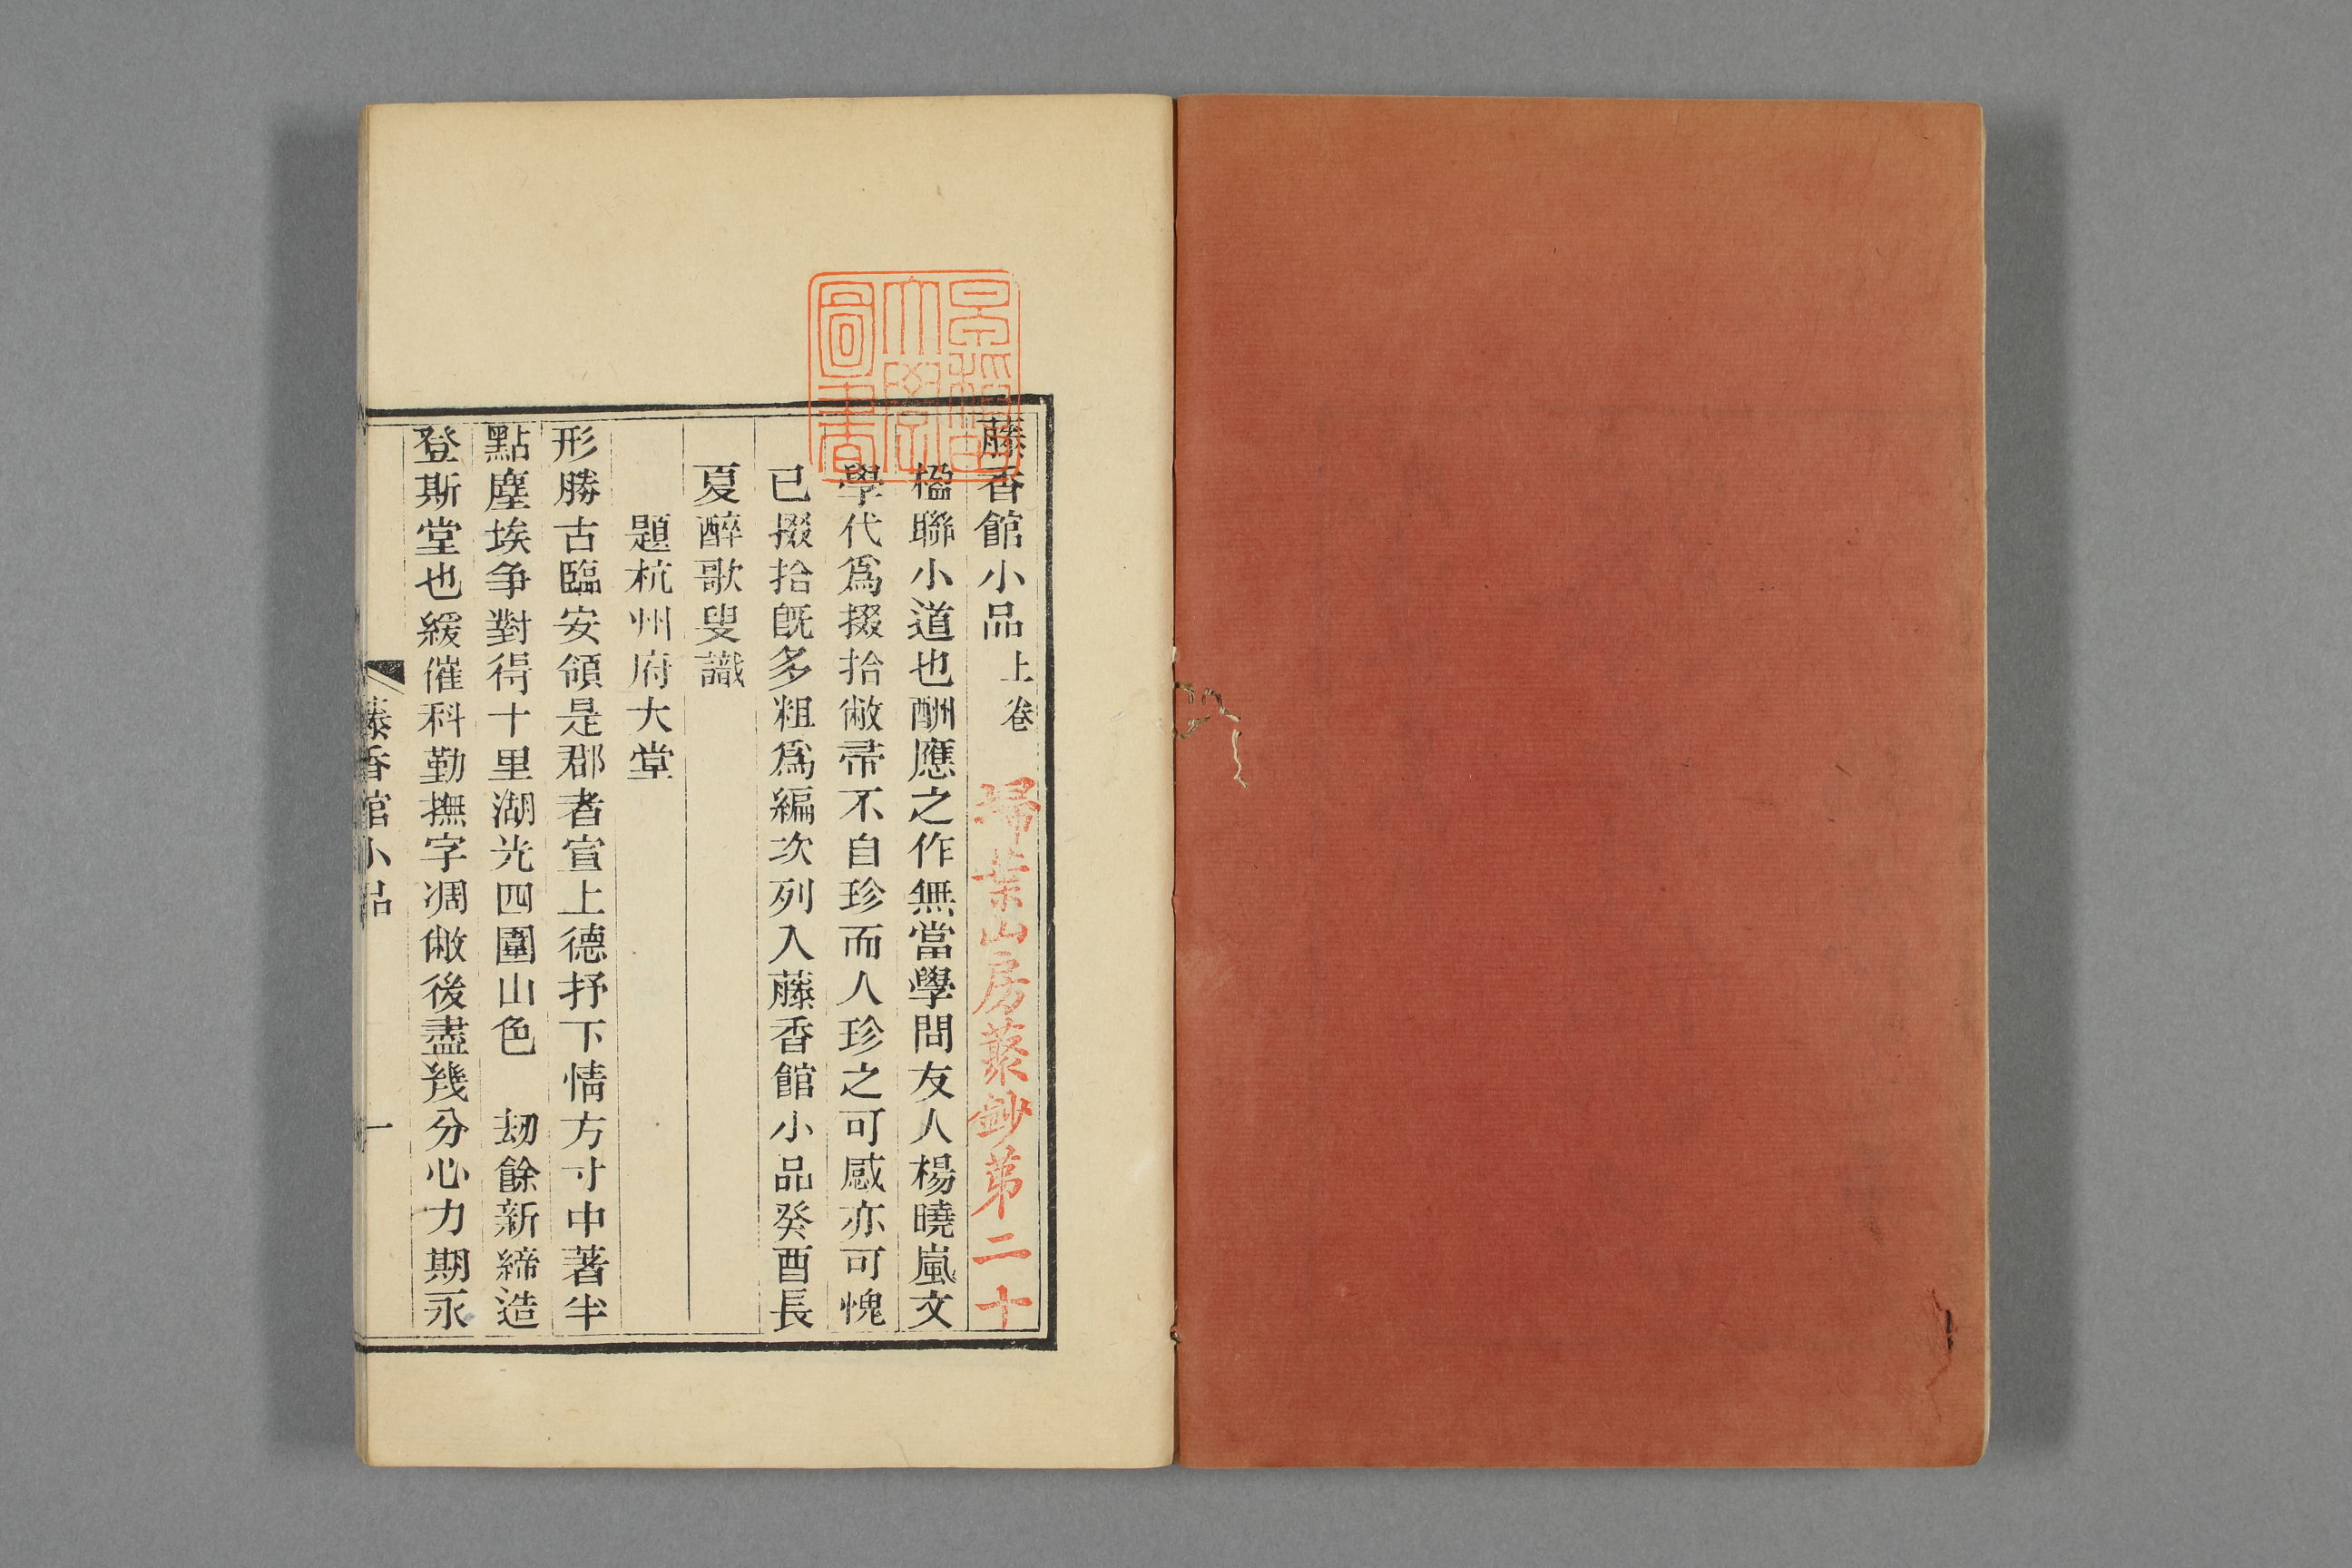 藤香館小品 上卷 掃葉山房叢鈔第二十
楹聯小道也酬應之作無當學問友人楊曉嵐文
學代爲掇拾敝帚不自珍而人珍之可感亦可愧
已掇拾旣多粗爲編次列入藤香館小品癸酉長
夏醉歌叟識
題杭州府大堂
形勝古臨安領是郡者宣上德抒下情方寸中著半
點塵埃爭對得十里湖光四圍山色 刼餘新締造
登斯堂也緩催科勤撫字凋敝後盡幾分心力期永
藤香館小品 一
早稻田大學圖書